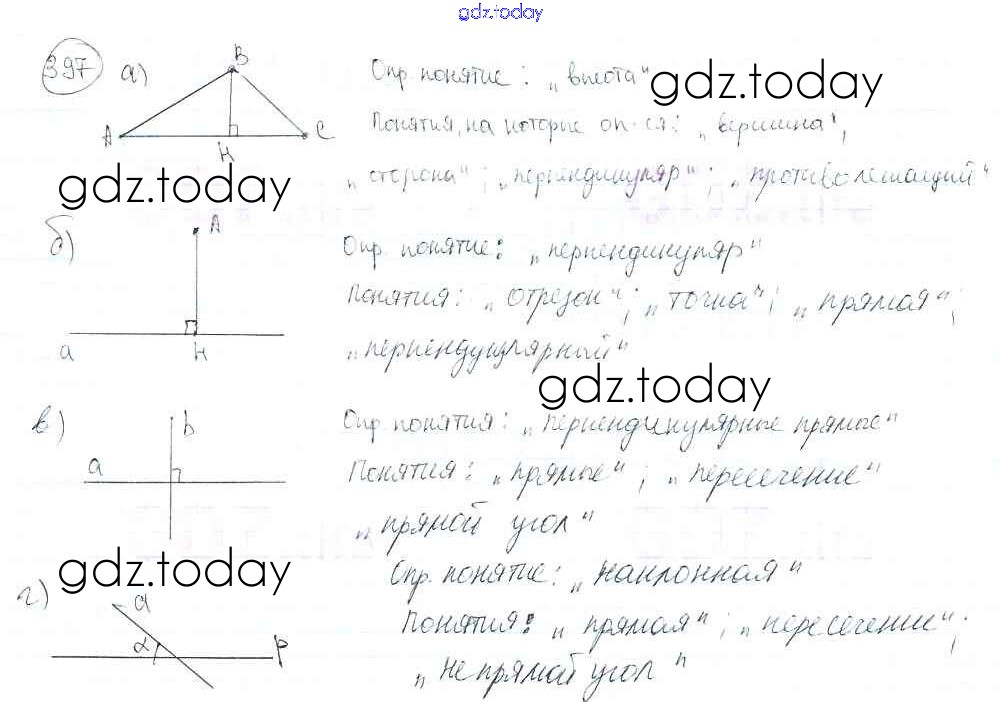 gdz.today
397 а) B Опр. понятие: „высота"
gdz.today
A C Понятия, на которые оп-ся: „вершина";
H
gdz.today „сторона"; „перпендикуляр"; „противолежащий"
б) A Опр. понятие: „перпендикуляр"
Понятия: „отрезок"; „точка"; „прямая";
a H
„перпендикулярный"
gdz.today
в) b Опр. понятия: „перпендикулярные прямые"
a Понятия: „прямые"; „пересечение"
„прямой угол"
gdz.today Опр. понятие: „наклонная"
г) a
Понятия: „прямая"; „пересечение";
α p
„не прямой угол"